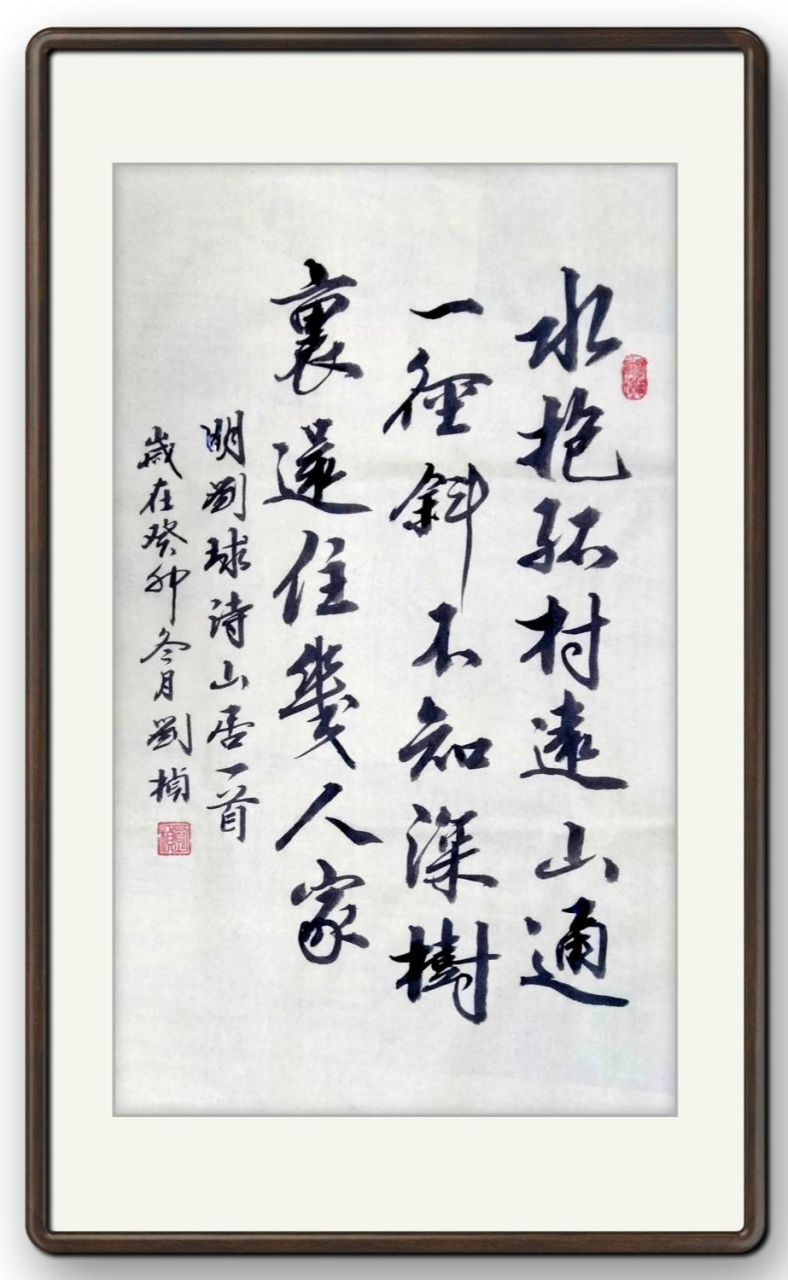 水抱孤村遠山通
一徑斜不知深樹
裏還住幾人家
明劉球詩山居一首
歲在癸卯冬月劉楨